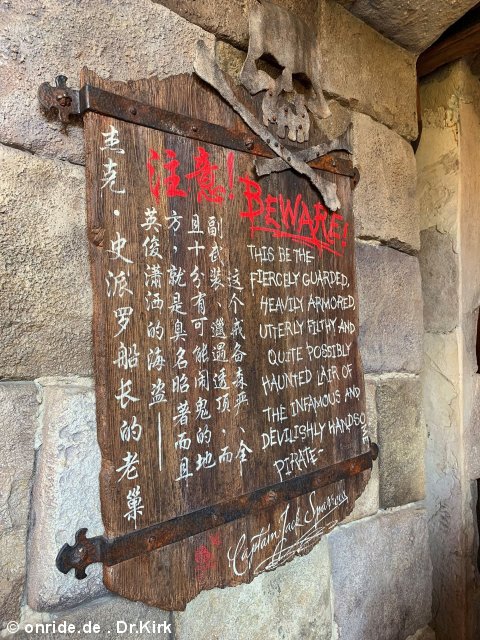 注意！
这个戒备森严、全
副武装、邋遢透顶，而
且十分有可能闹鬼的地
方，就是臭名昭著而且
英俊潇洒的海盗——
杰克·史派罗船长的老巢
BEWARE!
THIS BE THE
FIERCELY GUARDED,
HEAVILY ARMORED,
UTTERLY FILTHY AND
QUITE POSSIBLY
HAUNTED LAIR OF
THE INFAMOUS AND
DEVILISHLY HANDSOME
PIRATE-
Captain Jack Sparrow
© onride.de . Dr.Kirk